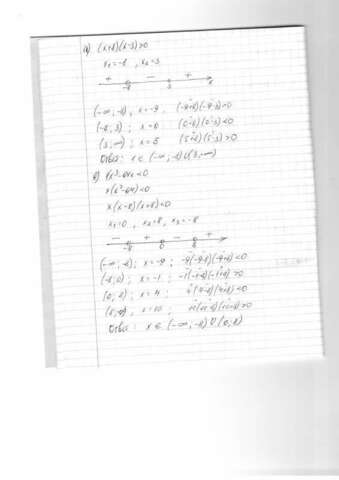 а) (x+8)(x-3)>0
x₁=-8, x₂=3
+ - +
-8 3 x
(-∞; -8), x=-9 (-9+8)(-9-3)>0
(-8; 3); x=0 (0+8)(0-3)<0
(3; ∞); x=5 (5+8)(5-3)>0
Ответ: x ∈ (-∞; -8)∪(3; ∞)
x(x²-64)<0
x(x-8)(x+8)<0
x₁=0, x₂=8, x₃=-8
- + - +
-8 0 8
(-∞; -8); x=-9; -9(-9-8)(-9+8)<0
(-8; 0); x=-1; -1(-1-8)(-1+8)>0
(0; 8); x=4; 4(4-8)(4+8)<0
x=10;
Ответ: x ∈ (-∞; -8)∪(0; 8)